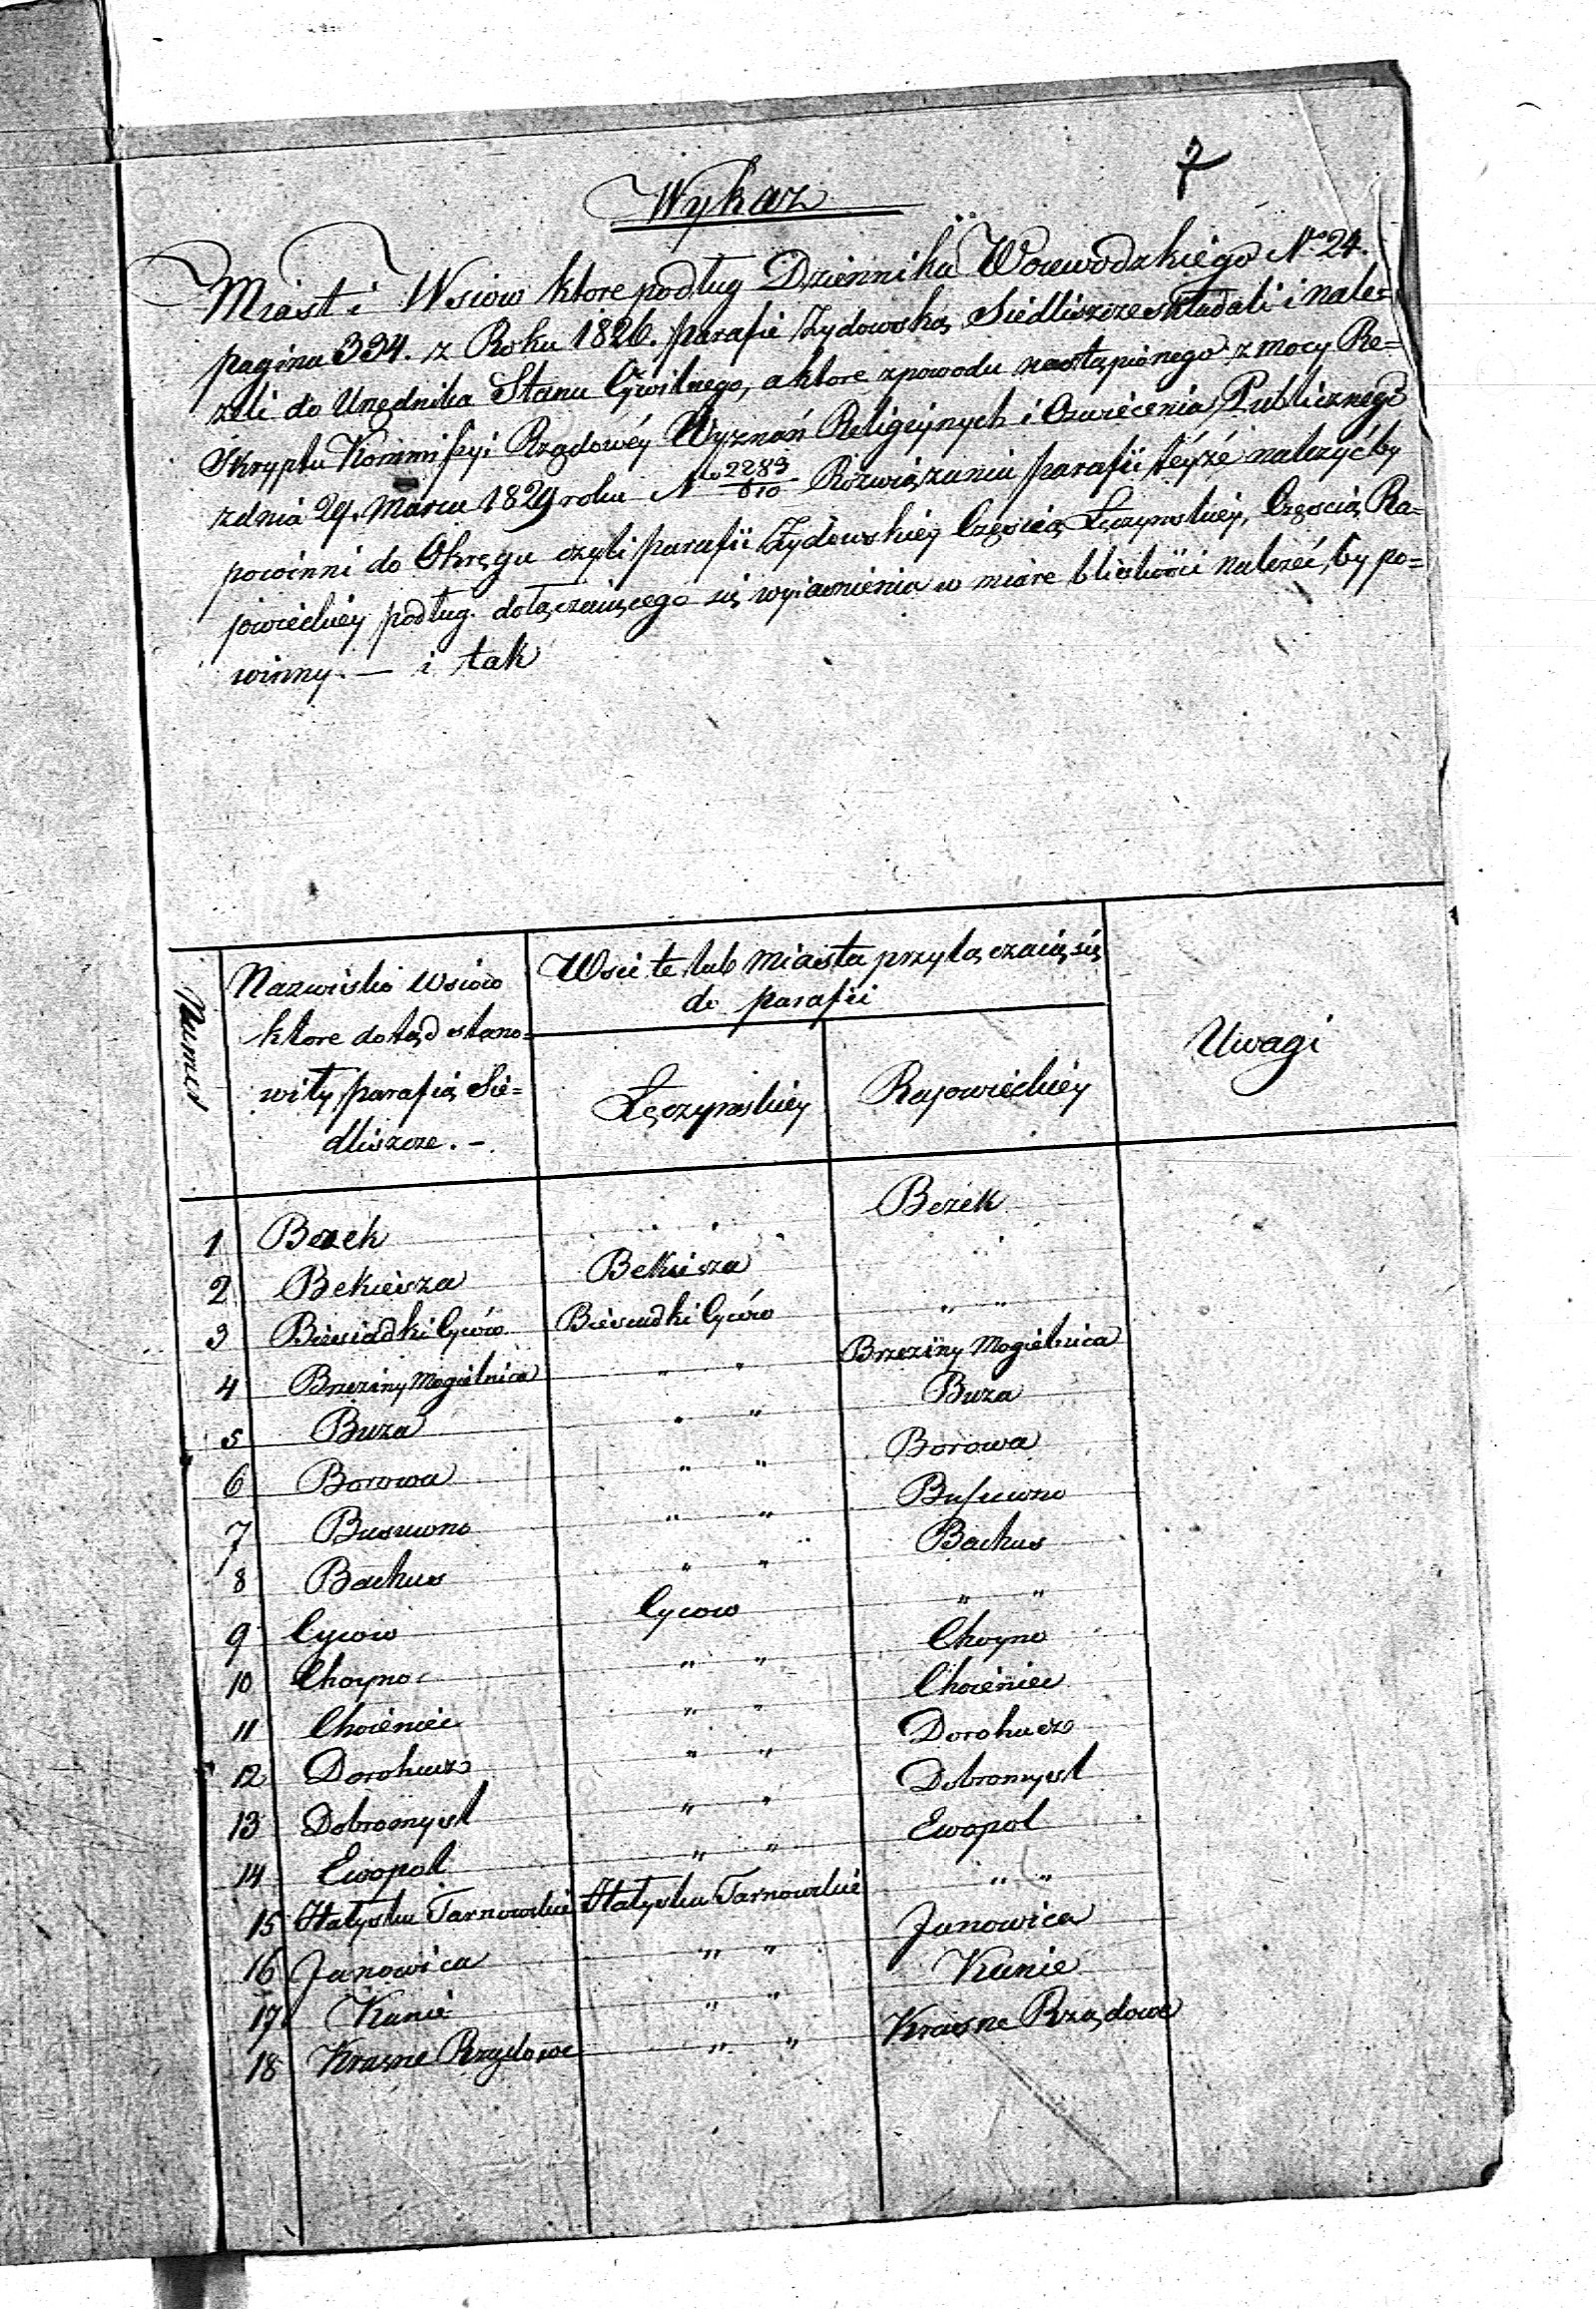 7
Wykaz
Miast i Wsiow ktore podług Dziennika Woiewodzkiego No 24.
pagina 334. z Roku 1826. parafie Zydowską Siedliszcze składali i nale=
zeli do Urzędnika Stanu Cywilnego, a ktore zpowodu nastąpionego z mocy Re=
skryptu Kommissyi Rządowéy Wyznań Religijnych i Oswiecenia Publicznego
zdnia 29. Marca 1829 roku No 2289/610 Rozwiązania parafii téyże należyćby
powinni do Okręgu czyli parafii Zydowskiey Częscią Łęczynskiey, Częscią Ra=
jowieckiey podług dołączaiącego się wyiasnienia w miare bliskości należeć, by po=
winny. — i tak
Numer
Nazwisko Wsiow
ktore dotąd stano=
wiły parafią Sie=
dliszcze. –
Wsie te lub miasta przyłączaią się
do parafii
Łęczynskiey
Rajowieckiey
Uwagi
1 Bezek . . . Bezek
2 Bekiesza Bekiesza " "
3 Biesiadki Cyców Biesiadki Cyców " "
4 Brzeziny Mogielnica " " Brzeziny Mogielnica
5 Buza " " Buza
6 Borowa " " Borowa
7 Busuwno " " Busuwno
8 Bachus " " Bachus
9 Cycow Cycow " "
10 Choyno " " Choyno
11 Choieniec " " Choieniec
12 Dorohucz " " Dorohucz
13 Dobromysl " " Dobromysl
14 Ewopol " " Ewopol
15 Stałyska Tarnowskie Stałyska Tarnowskie " "
16 Janowica " " Janowica
17 Kanie " " Kanie
18 Krasne Rządowe " " Krasne Rządowe